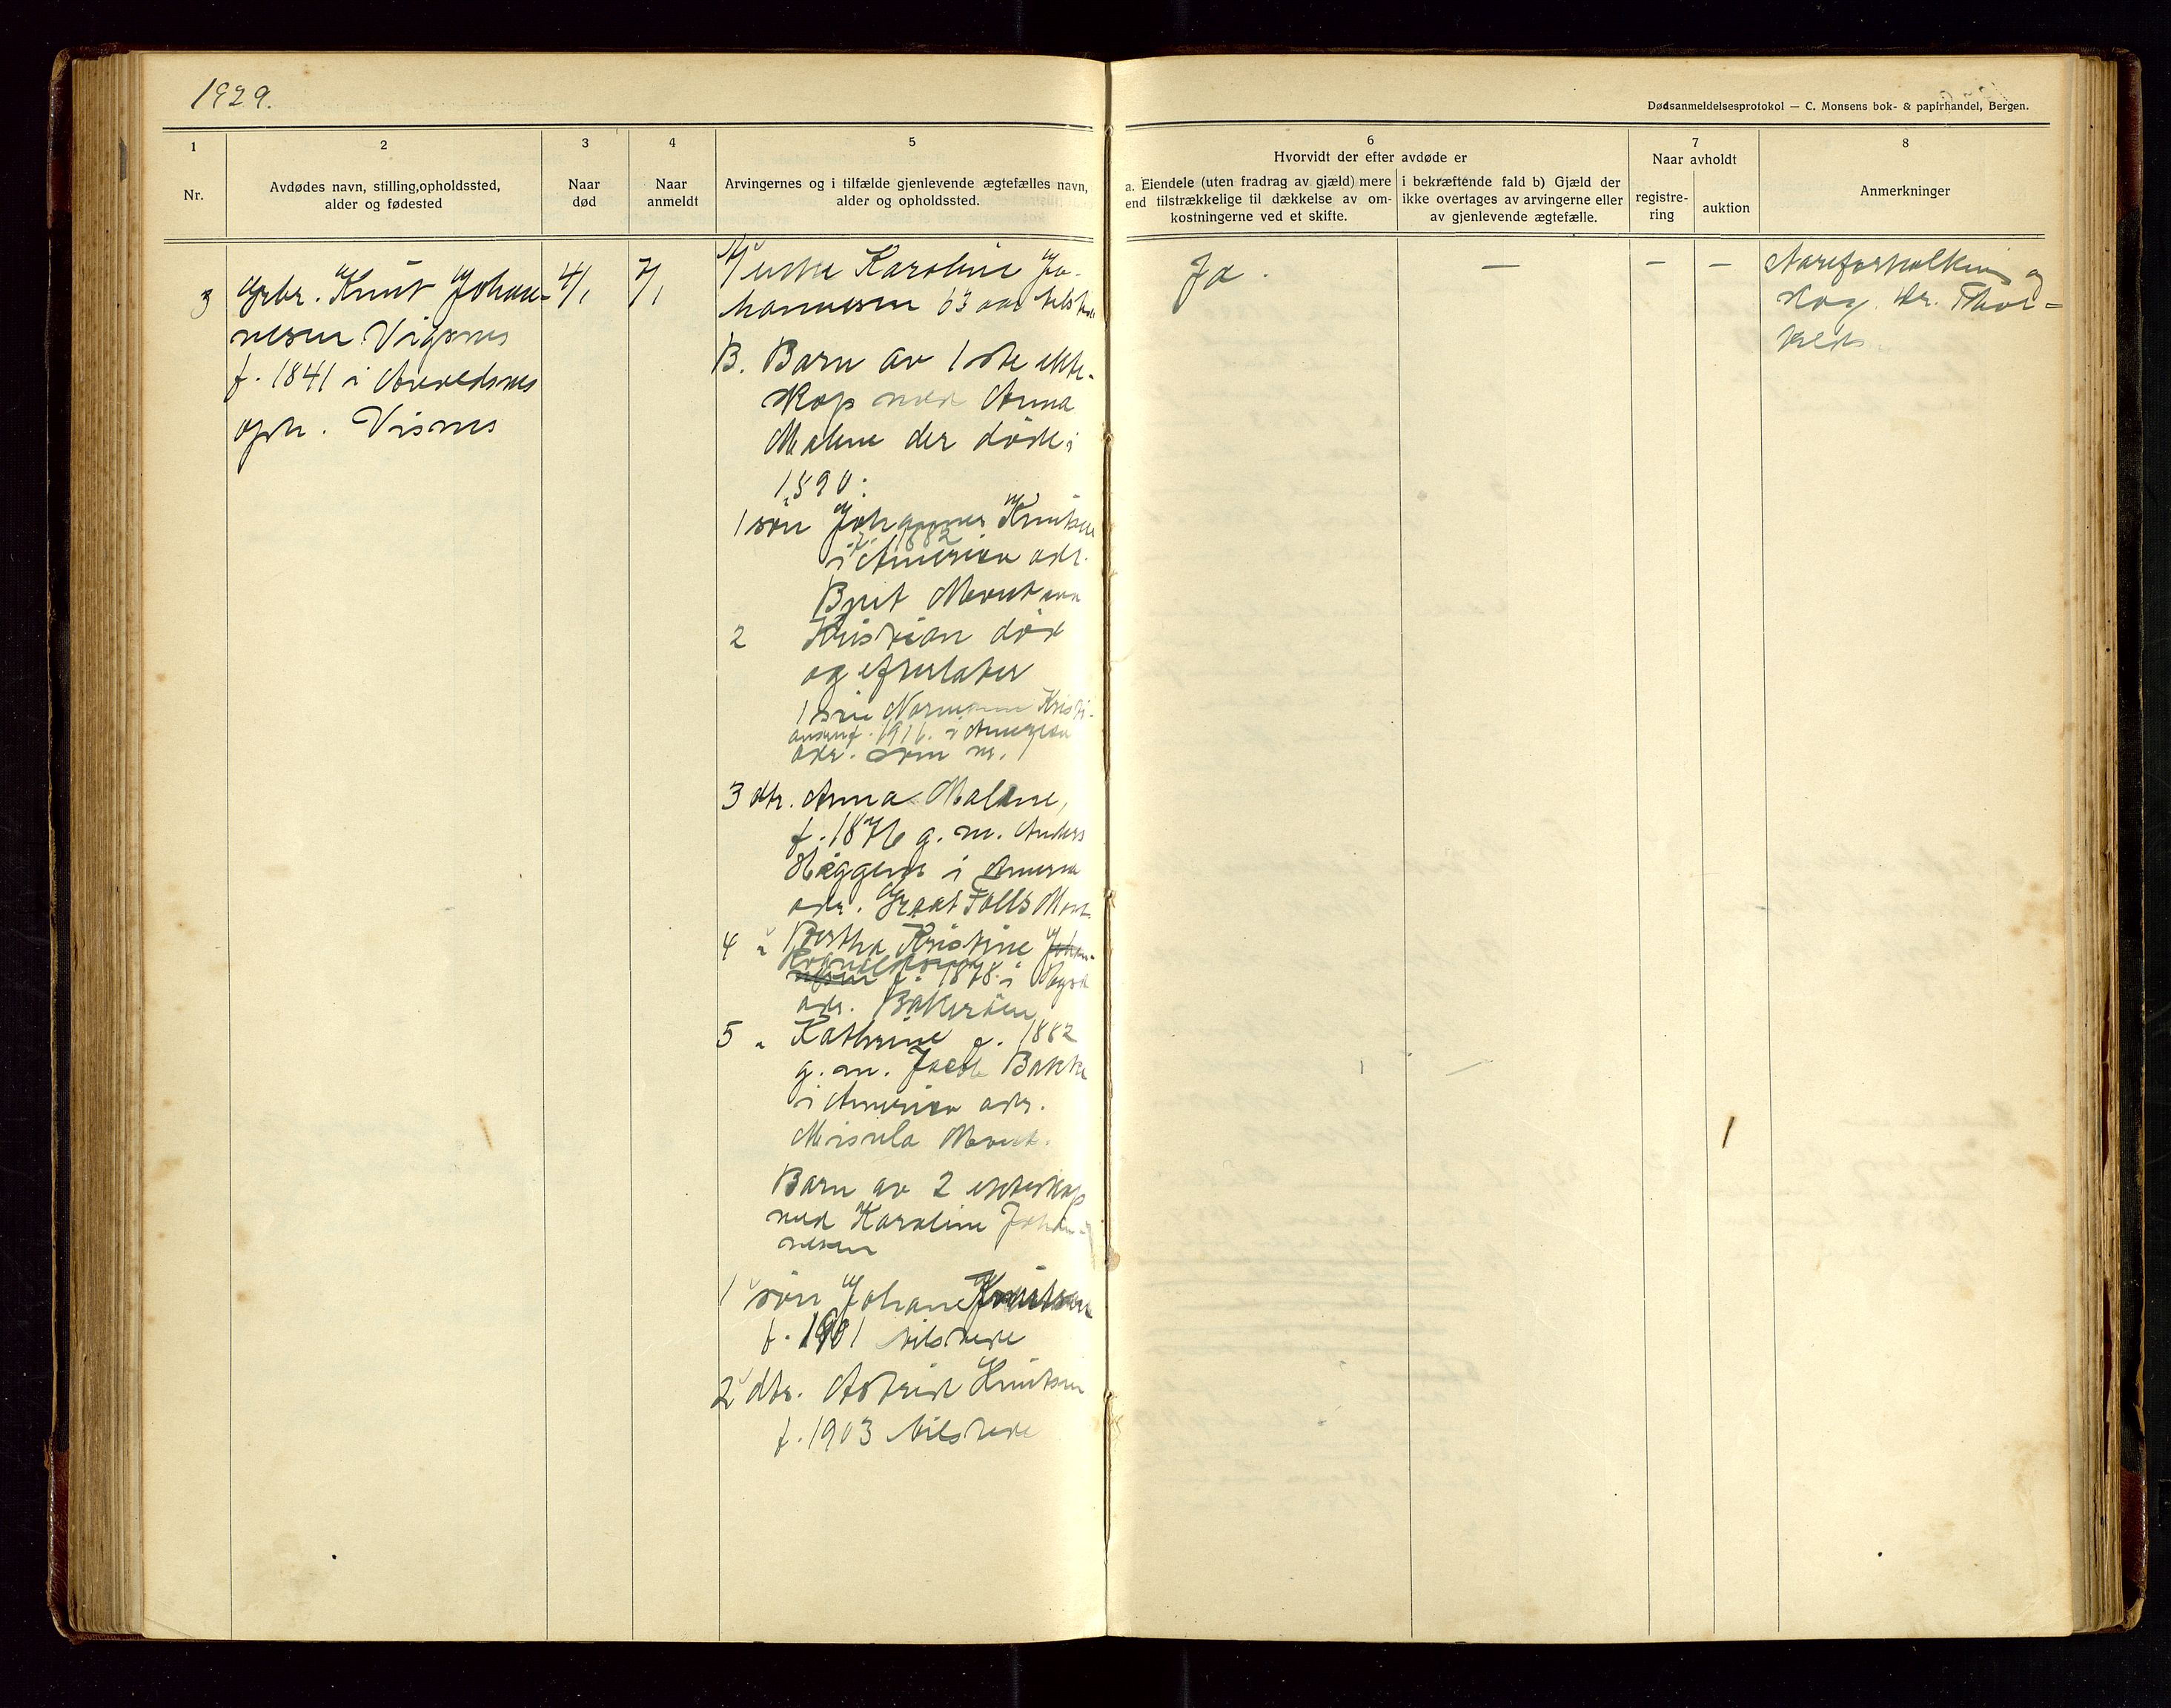 1929.
Dødsanmeldelsesprotokol — C. Monsens bok- & papirhandel, Bergen.
1
Nr.
2
Avdødes navn, stilling, opholdssted,
alder og fødested
3
Naar
død
4
Naar
anmeldt
5
Arvingernes og i tilfælde gjenlevende ægtefælles navn,
alder og opholdssted.
6
Hvorvidt der efter avdøde er
a. Eiendele (uten fradrag av gjæld) mere
end tilstrækkelige til dækkelse av om-
kostningerne ved et skifte.
i bekræftende fald b) Gjæld der
ikke overtages av arvingerne eller
av gjenlevende ægtefælle.
7
Naar avholdt
registre-
ring
auktion
8
Anmerkninger
3
Gbr. Knut Johan-
nesen Vigsnes
f. 1841 i Avaldsnes
oph. Visnes
4/1
7/1
A/ enke Karoline Jo-
hannesen 63 aar tilstede
B. Barn av 1ste ekte-
skap med Anna
Malene der døde i
1890:
1 søn Johannes Knutsen
f. 1882
i Amerika adr.
Montana
2 Kristian død
og efterlater
1 søn Kristi-
ansen f. 1916 i Amerika
adr. som nr. 1
3 dtr. Anna Malene,
f. 1876 g. m. Anders
i Amerika
adr. Great Falls Mont.
4 " Bertha Kristine Johan-
nesen f. 1878 i
adr.
5 " Kathrine f. 1882
g. m. Jacob Bakke
i Amerika adr.
Misula Mont.
Barn av 2 ekteskap
med Karoline Johan-
nesen
1 søn Johan Knutsen
f. 1901 tilstede
2 dtr. Astrid Knutsen
f. 1903 tilstede
Ja.
—
—
—
og
skog. Hr. Thor-